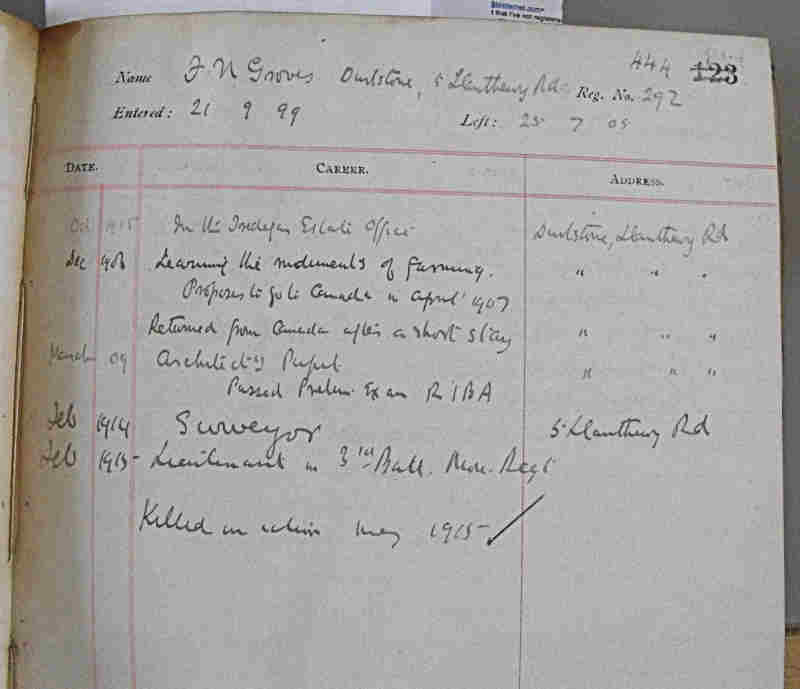 444 123
Name F. N Groves Durlstone, 5 Llanthewy Rd Reg. No. 292
Entered: 21 9 99 Left: 25 7 05
DATE. CAREER. ADDRESS.
Oct In the Tredegar Estate Office Durlstone, Llanthewy Rd
Dec 1906 Learning the rudiments of farming. " " "
Proposes to go to Canada in April 1907
Returned from Canada after a short stay " " "
March 09 Architect's Pupil " " "
Passed Prelim. Exam R I B A
Feb 1914 Surveyor 5 Llanthewy Rd
Feb 1915 Lieutenant in 3rd Batt. Mon. Regt
Killed in action May 1915